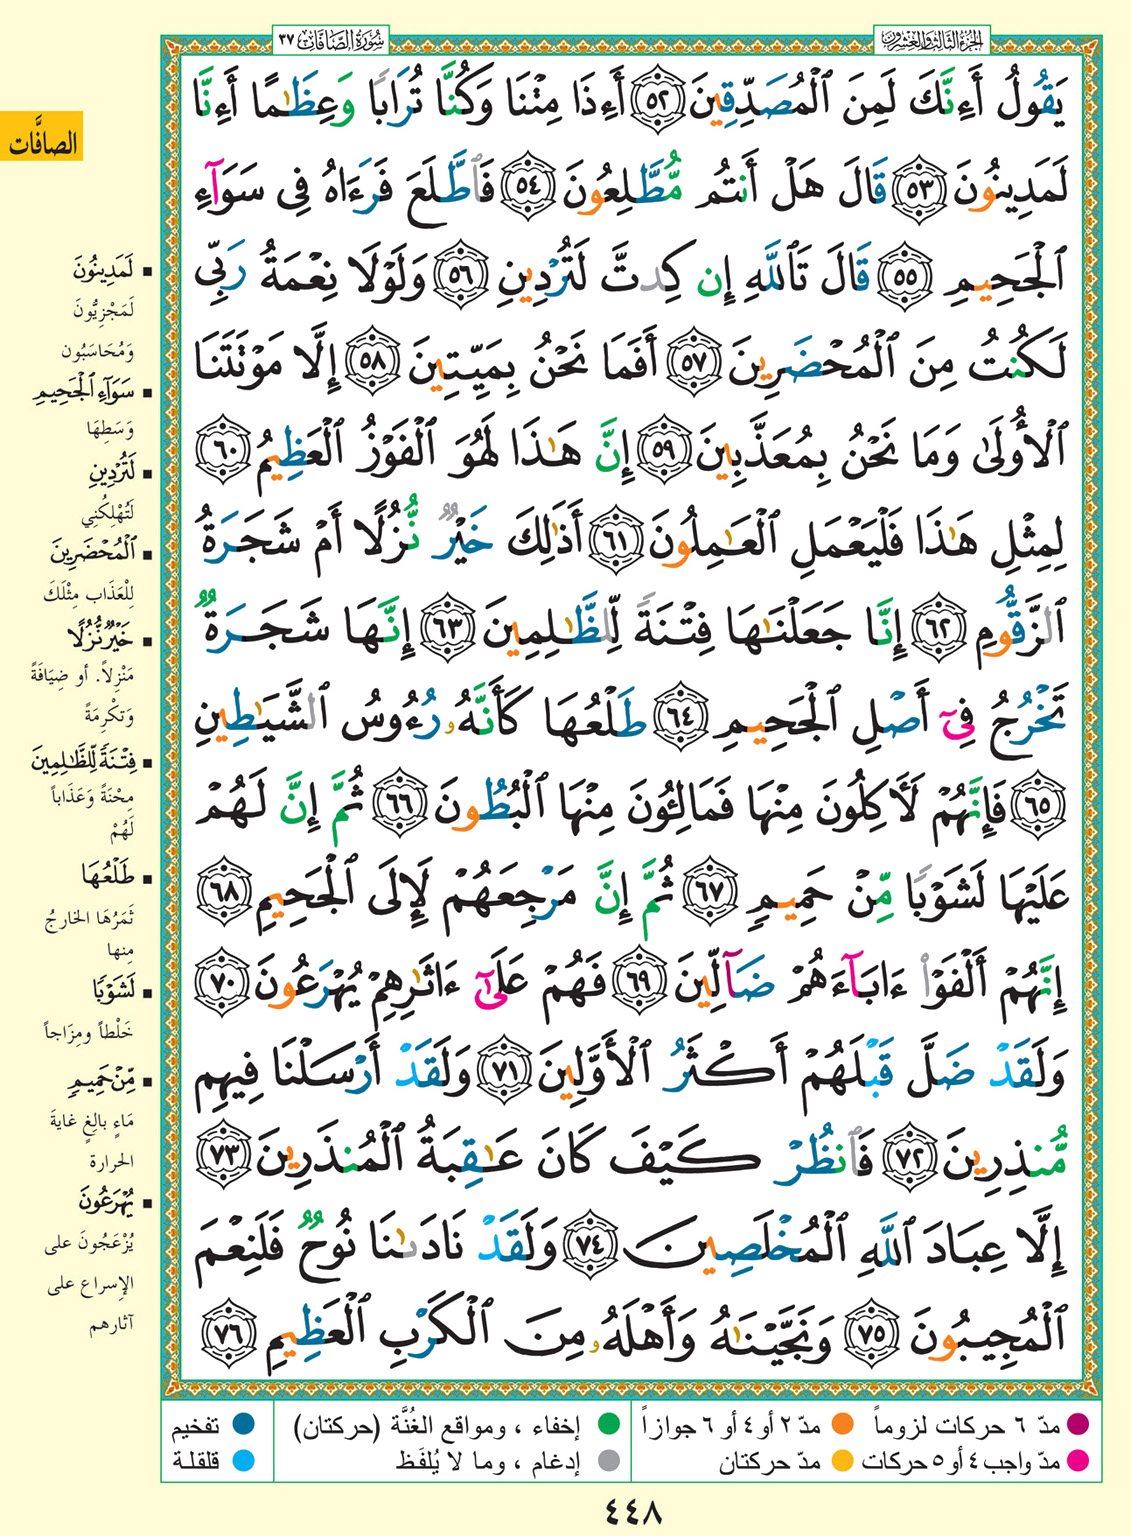 سُورَةُ الصَّافَّات ٣٧
الجزء الثالث والعشرون
الصافَّات
يَقُولُ أَءِنَّكَ لَمِنَ ٱلْمُصَدِّقِينَ ٥٢ أَءِذَا مِتْنَا وَكُنَّا تُرَابًا وَعِظَٰمًا أَءِنَّا
لَمَدِينُونَ ٥٣ قَالَ هَلْ أَنتُم مُّطَّلِعُونَ ٥٤ فَٱطَّلَعَ فَرَءَاهُ فِى سَوَآءِ
ٱلْجَحِيمِ ٥٥ قَالَ تَٱللَّهِ إِن كِدتَّ لَتُرْدِينِ ٥٦ وَلَوْلَا نِعْمَةُ رَبِّى
لَكُنتُ مِنَ ٱلْمُحْضَرِينَ ٥٧ أَفَمَا نَحْنُ بِمَيِّتِينَ ٥٨ إِلَّا مَوْتَتَنَا
ٱلْأُولَىٰ وَمَا نَحْنُ بِمُعَذَّبِينَ ٥٩ إِنَّ هَٰذَا لَهُوَ ٱلْفَوْزُ ٱلْعَظِيمُ ٦٠
لِمِثْلِ هَٰذَا فَلْيَعْمَلِ ٱلْعَٰمِلُونَ ٦١ أَذَٰلِكَ خَيْرٌ نُّزُلًا أَمْ شَجَرَةُ
ٱلزَّقُّومِ ٦٢ إِنَّا جَعَلْنَٰهَا فِتْنَةً لِّلظَّٰلِمِينَ ٦٣ إِنَّهَا شَجَرَةٌ
تَخْرُجُ فِىٓ أَصْلِ ٱلْجَحِيمِ ٦٤ طَلْعُهَا كَأَنَّهُۥ رُءُوسُ ٱلشَّيَٰطِينِ
٦٥ فَإِنَّهُمْ لَءَاكِلُونَ مِنْهَا فَمَالِـُٔونَ مِنْهَا ٱلْبُطُونَ ٦٦ ثُمَّ إِنَّ لَهُمْ
عَلَيْهَا لَشَوْبًا مِّنْ حَمِيمٍ ٦٧ ثُمَّ إِنَّ مَرْجِعَهُمْ لَإِلَى ٱلْجَحِيمِ ٦٨
إِنَّهُمْ أَلْفَوْا۟ ءَابَآءَهُمْ ضَآلِّينَ ٦٩ فَهُمْ عَلَىٰٓ ءَاثَٰرِهِمْ يُهْرَعُونَ ٧٠
وَلَقَدْ ضَلَّ قَبْلَهُمْ أَكْثَرُ ٱلْأَوَّلِينَ ٧١ وَلَقَدْ أَرْسَلْنَا فِيهِم
مُّنذِرِينَ ٧٢ فَٱنظُرْ كَيْفَ كَانَ عَٰقِبَةُ ٱلْمُنذَرِينَ ٧٣
إِلَّا عِبَادَ ٱللَّهِ ٱلْمُخْلَصِينَ ٧٤ وَلَقَدْ نَادَىٰنَا نُوحٌ فَلَنِعْمَ
ٱلْمُجِيبُونَ ٧٥ وَنَجَّيْنَٰهُ وَأَهْلَهُۥ مِنَ ٱلْكَرْبِ ٱلْعَظِيمِ ٧٦
لَمَدِينُونَ
لَمَجْزِيُّونَ
وَمُحَاسَبُون
سَوَآءِ ٱلْجَحِيمِ
وَسَطِهَا
لَتُرْدِينِ
لَتُهْلِكُنِي
ٱلْمُحْضَرِينَ
لِلْعَذَاب مِثْلَكَ
خَيْرٌ نُّزُلًا
مَنْزِلاً. أو ضِيَافَةً
وَتكْرِمَةً
فِتْنَةً لِّلظَّٰلِمِينَ
مِحْنَةً وَعَذَاباً
لَهُمْ
طَلْعُهَا
ثَمَرُهَا الخارجُ
مِنها
لَشَوْبًا
خَلْطاً ومِزَاجاً
مِّنْ حَمِيمٍ
مَاءٍ بالِغٍ غايةَ
الحرارة
يُهْرَعُونَ
يُزْعَجُونَ على
الإسراع على
آثارهم
مدّ ٦ حركات لزوماً مدّ ٢ أو ٤ أو ٦ جوازاً إخفاء ، ومواقع الغُنَّة (حركتان) تفخيم
مدّ واجب ٤ أو ٥ حركات مدّ حركتان إدغام ، وما لا يُلفَظ قلقلة
٤٤٨